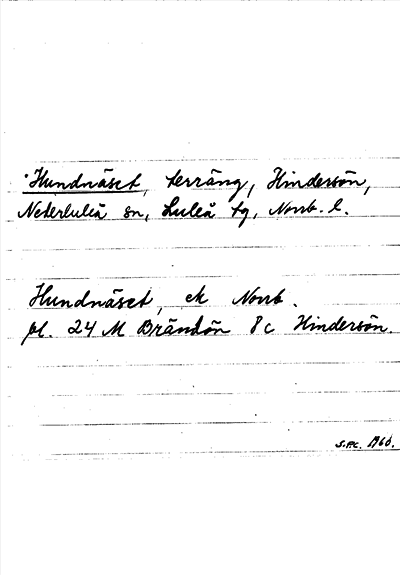 *Hundnäset, terräng, Hindersön,
Nederluleå sn, Luleå tg, Norrb. l.
Hundnäset, ek Norrb.
bl. 24 M Brändön 8 c Hindersön.
1960.